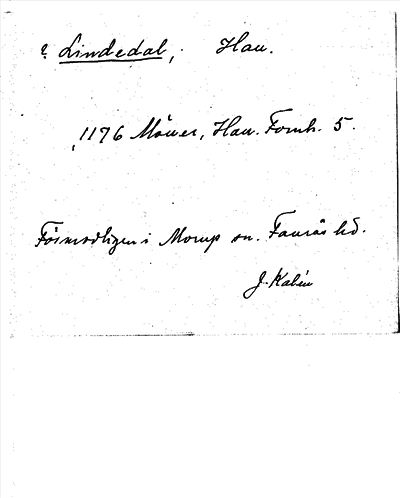 ? Lindedal, Han.
1176 Måner, Han. Fornh. 5.
Förmodligen i Morup sn. Faurås hd.
J. Kalén